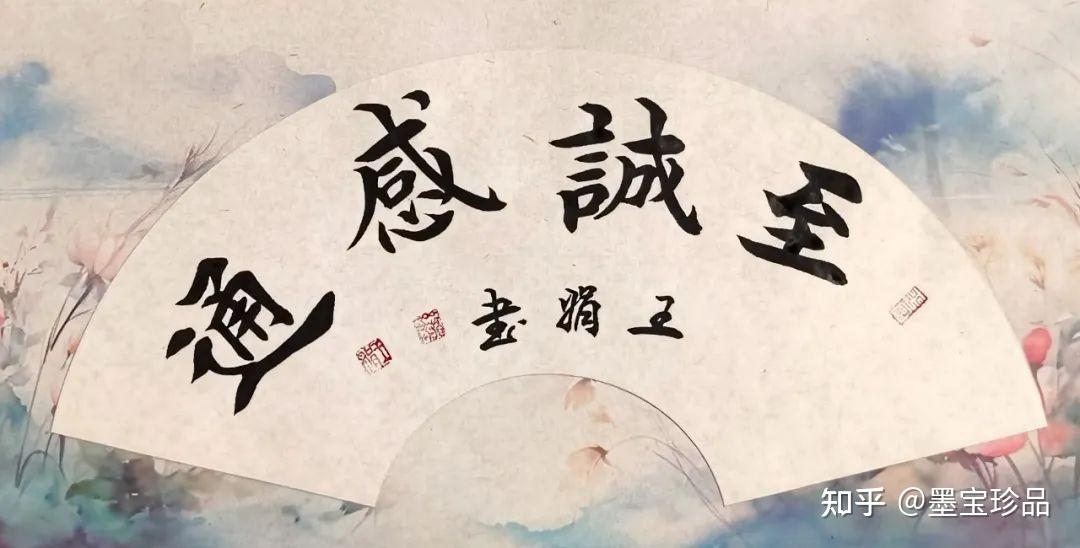 至誠感通
王娟書
知乎 @墨宝珍品